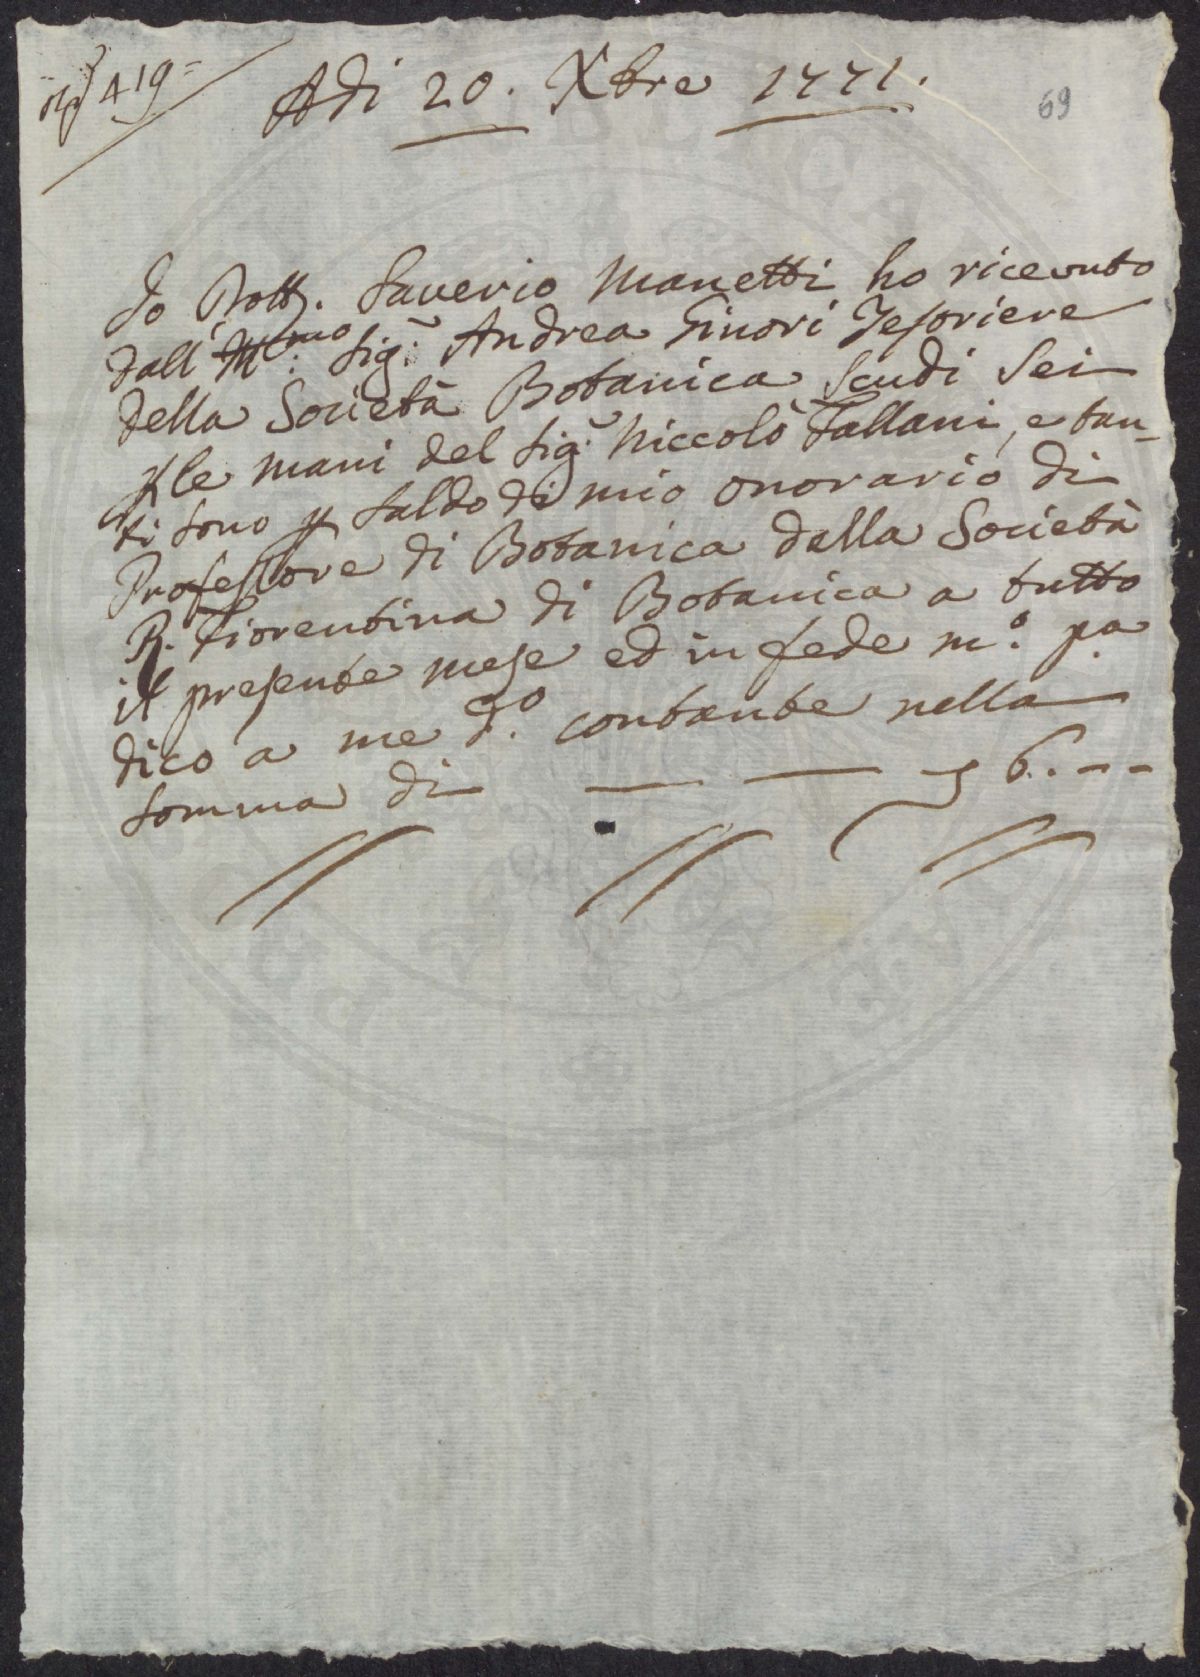 419
Adi 20. Xbre 1771.
69
Io Dott. Saverio Manetti ho ricevuto
dall' Ill:mo Sig.r Andrea Ginori Tesoriere
della Società Botanica Scudi Sei
p le mani del Sig.r Niccolò Fallani, e tan-
ti sono p saldo di mio onorario di
Professore di Botanica dalla Società
R. Fiorentina di Botanica a tutto
il presente mese ed in fede m.o p.a
dico a me d.o contante nella
somma di — — 6. - -